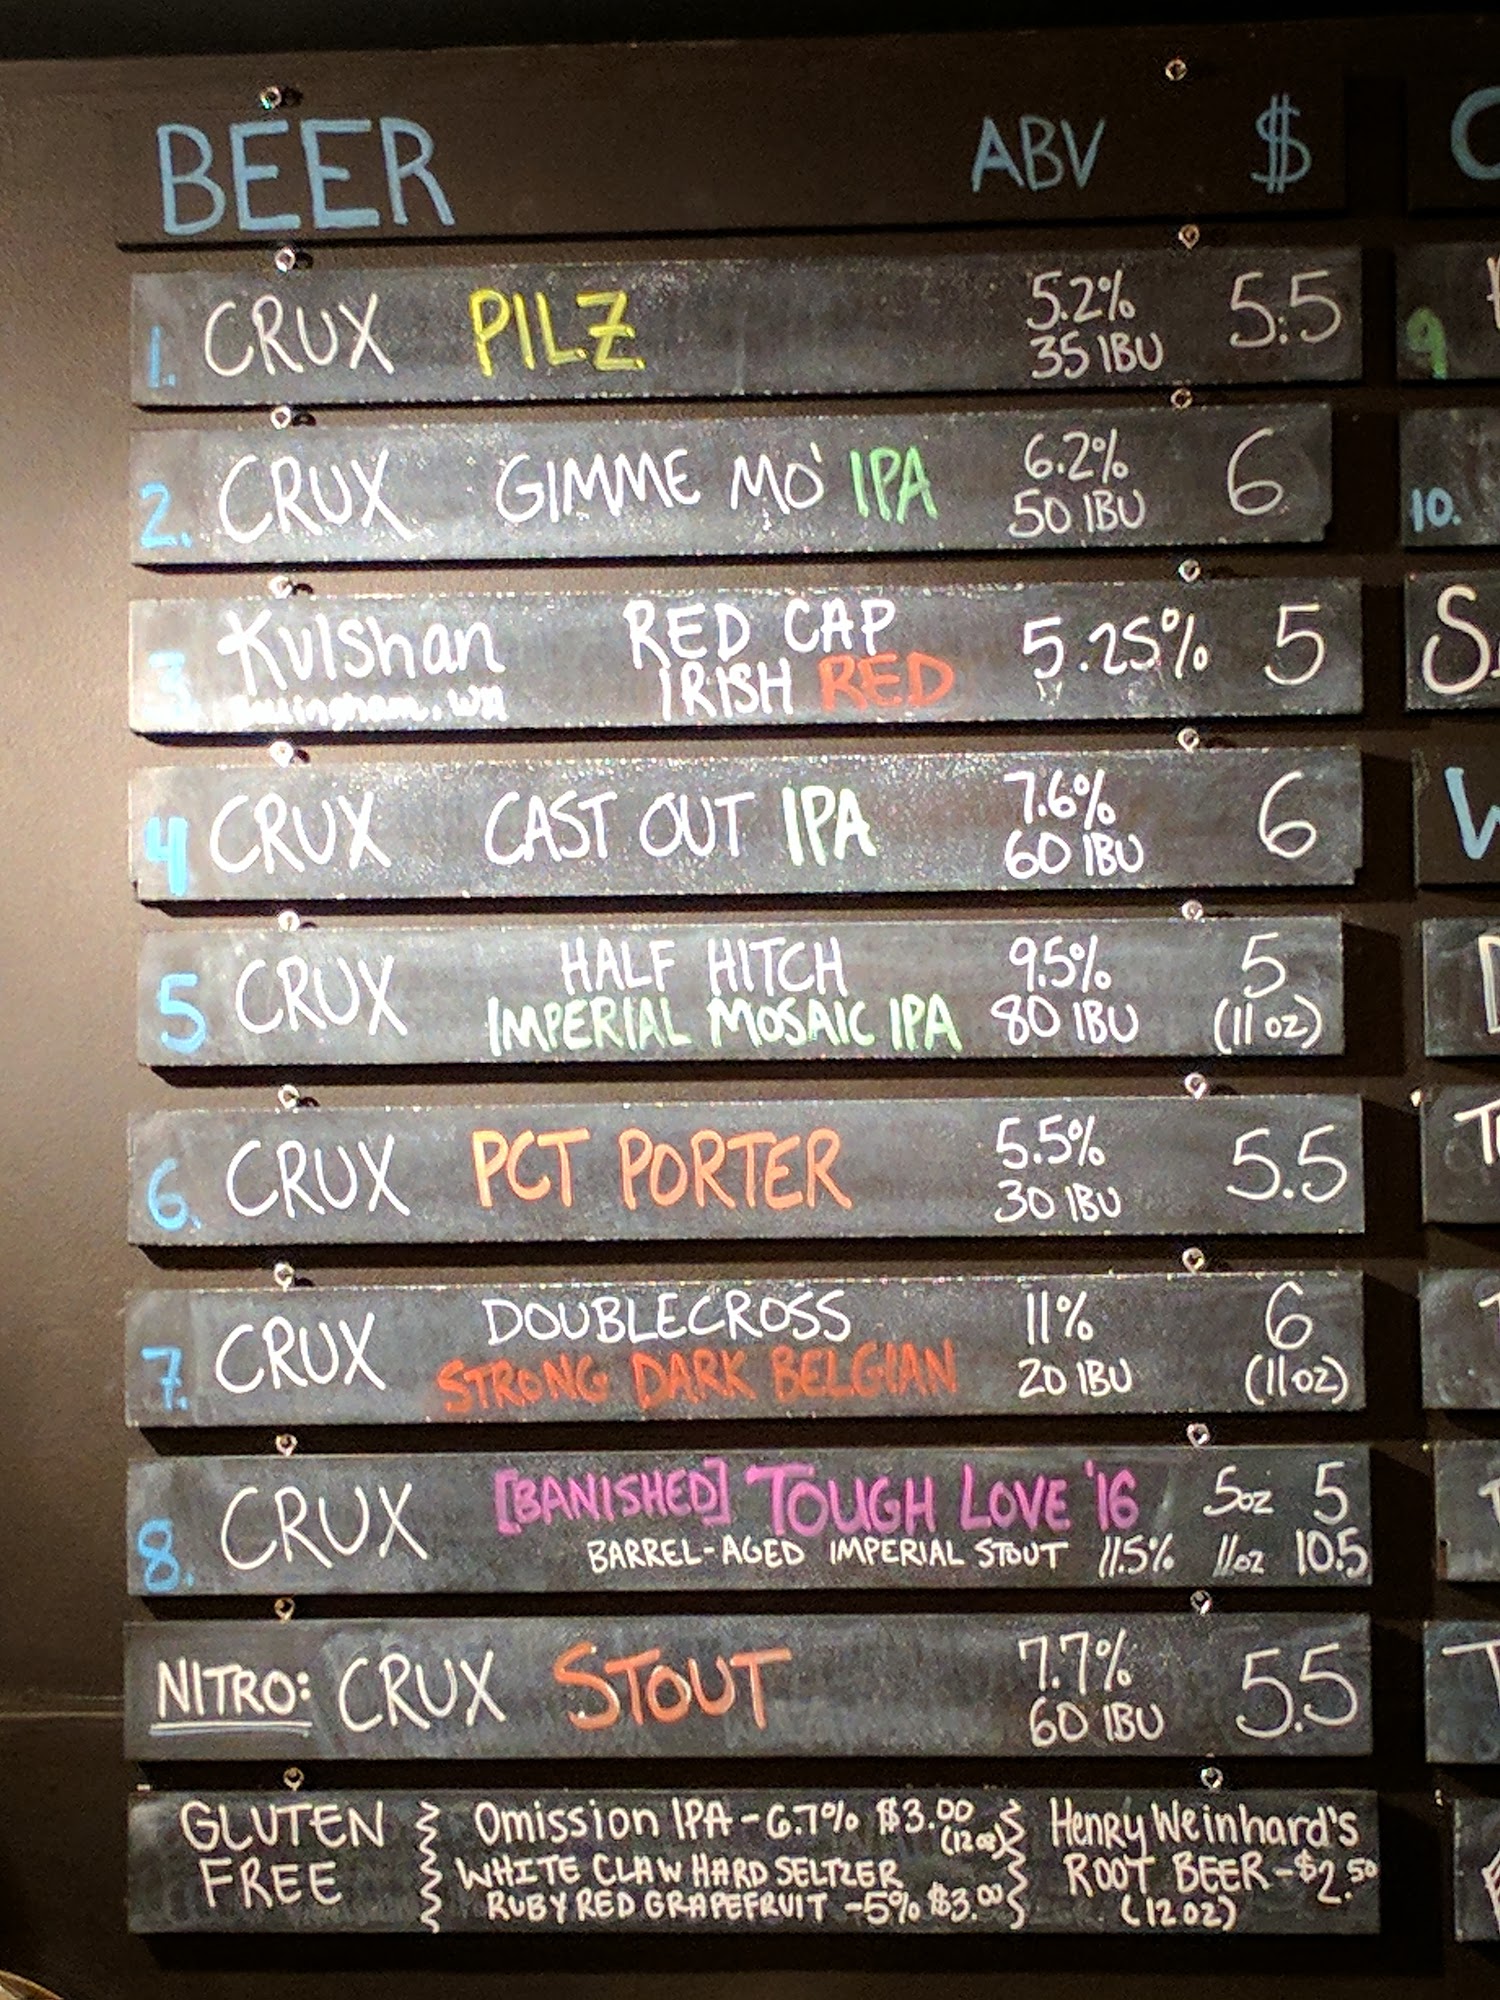 BEER ABV $
1. CRUX PILZ 5.2% 5.5
35 IBU
2. CRUX GIMME MO' IPA 6.2% 6
50 IBU
3 Kulshan RED CAP 5.25% 5
Bellingham, WA IRISH RED
4 CRUX CAST OUT IPA 7.6% 6
60 IBU
5 CRUX HALF HITCH 9.5% 5
IMPERIAL MOSAIC IPA 80 IBU (11 oz)
6. CRUX PCT PORTER 5.5% 5.5
30 IBU
7. CRUX DOUBLECROSS 11% 6
STRONG DARK BELGIAN 20 IBU (11oz)
8. CRUX [BANISHED] TOUGH LOVE '16 5oz 5
BARREL-AGED IMPERIAL STOUT 11.5% 11oz 10.5
NITRO: CRUX STOUT 7.7% 5.5
60 IBU
GLUTEN FREE
Omission IPA - 6.7% $3.00
(12oz)
WHITE CLAW HARD SELTZER
RUBY RED GRAPEFRUIT - 5% $3.00
Henry Weinhard's
ROOT BEER - $2.50
(12 oz)
9
10.